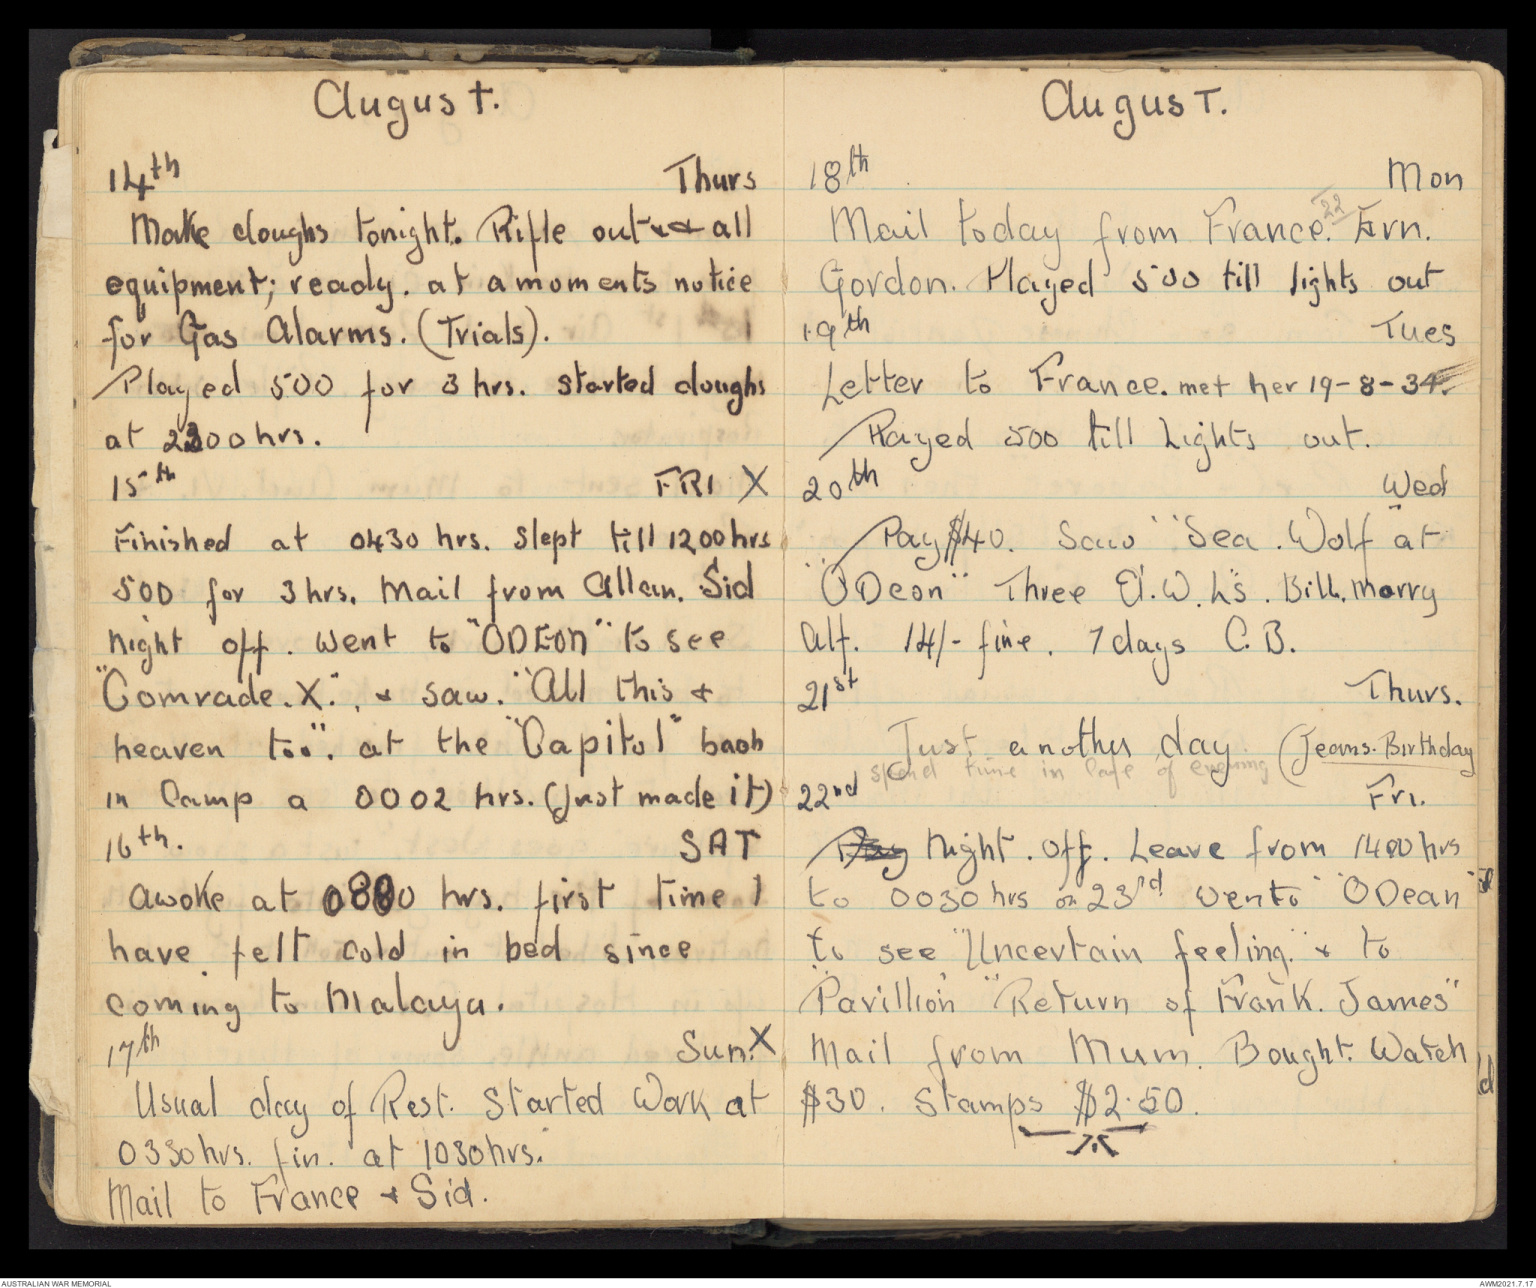 August.
14th Thurs
Make doughs tonight. Rifle out & all
equipment; ready. at a moments notice
for Gas Alarms. (Trials).
Played 500 for 3 hrs. Started doughs
at 2200 hrs.
15th FRI X
Finished at 0430 hrs. Slept till 1200 hrs
500 for 3 hrs. Mail from Allan. Sid
Night off. Went to "ODEON" to see
"Comrade. X.", & saw. "All this &
heaven too". at the "Capitol" back
in Camp a 0002 hrs. (Just made it)
16th. SAT
Awoke at 0800 hrs. first time I
have felt cold in bed since
coming to Malaya.
17th Sun. X
Usual day of Rest. Started Work at
0330 hrs. fin. at 1030 hrs.
Mail to France & Sid.
August.
18th Mon
Mail today from France. 22 Ern.
Gordon. Played 500 till lights out
19th Tues
Letter to France. met her 19-8-34.
Played 500 till Lights out.
20th Wed
Pay $40. Saw "Sea. Wolf at
"ODeon" Three A.W.L's. Bill, Morry
Alf. 14/- fine. 7 days C.B.
21st Thurs.
Just another day (Jeans. Birthday
spend time in Cafe of evening
22nd Fri.
Night. Off. Leave from 1400 hrs
to 0030 hrs on 23rd Went to "ODean"
to see "Uncertain feeling." & to
Pavillion "Return of Frank. James"
Mail from Mum. Bought. Watch
$30. Stamps $2.50.
AUSTRALIAN WAR MEMORIAL
AWM2021.7.17